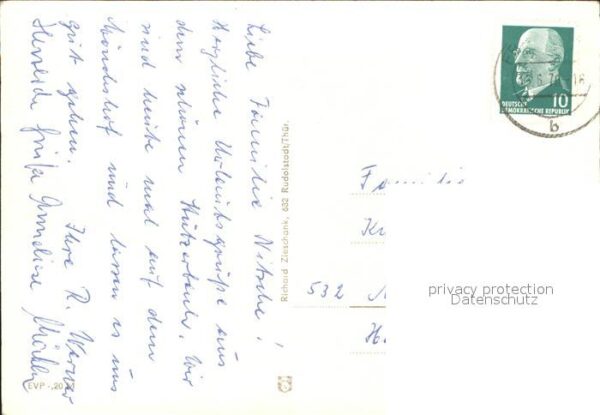 Liebe Familie Nitsche!
Herzliche Urlaubsgrüße aus
dem schönen Hützerbach. Wir
sind heute mal auf dem
Mönchshof und lassen es uns
gut gehen.
Ihre R. Werner
Herzliche Grüße Anneliese
Richard Zieschank, 682 Rudolstadt/Thür.
EVP -,20
DEUTSCHE
DEMOKRATISCHE REPUBLIK
10
b
Familie
532
privacy protection
Datenschutz